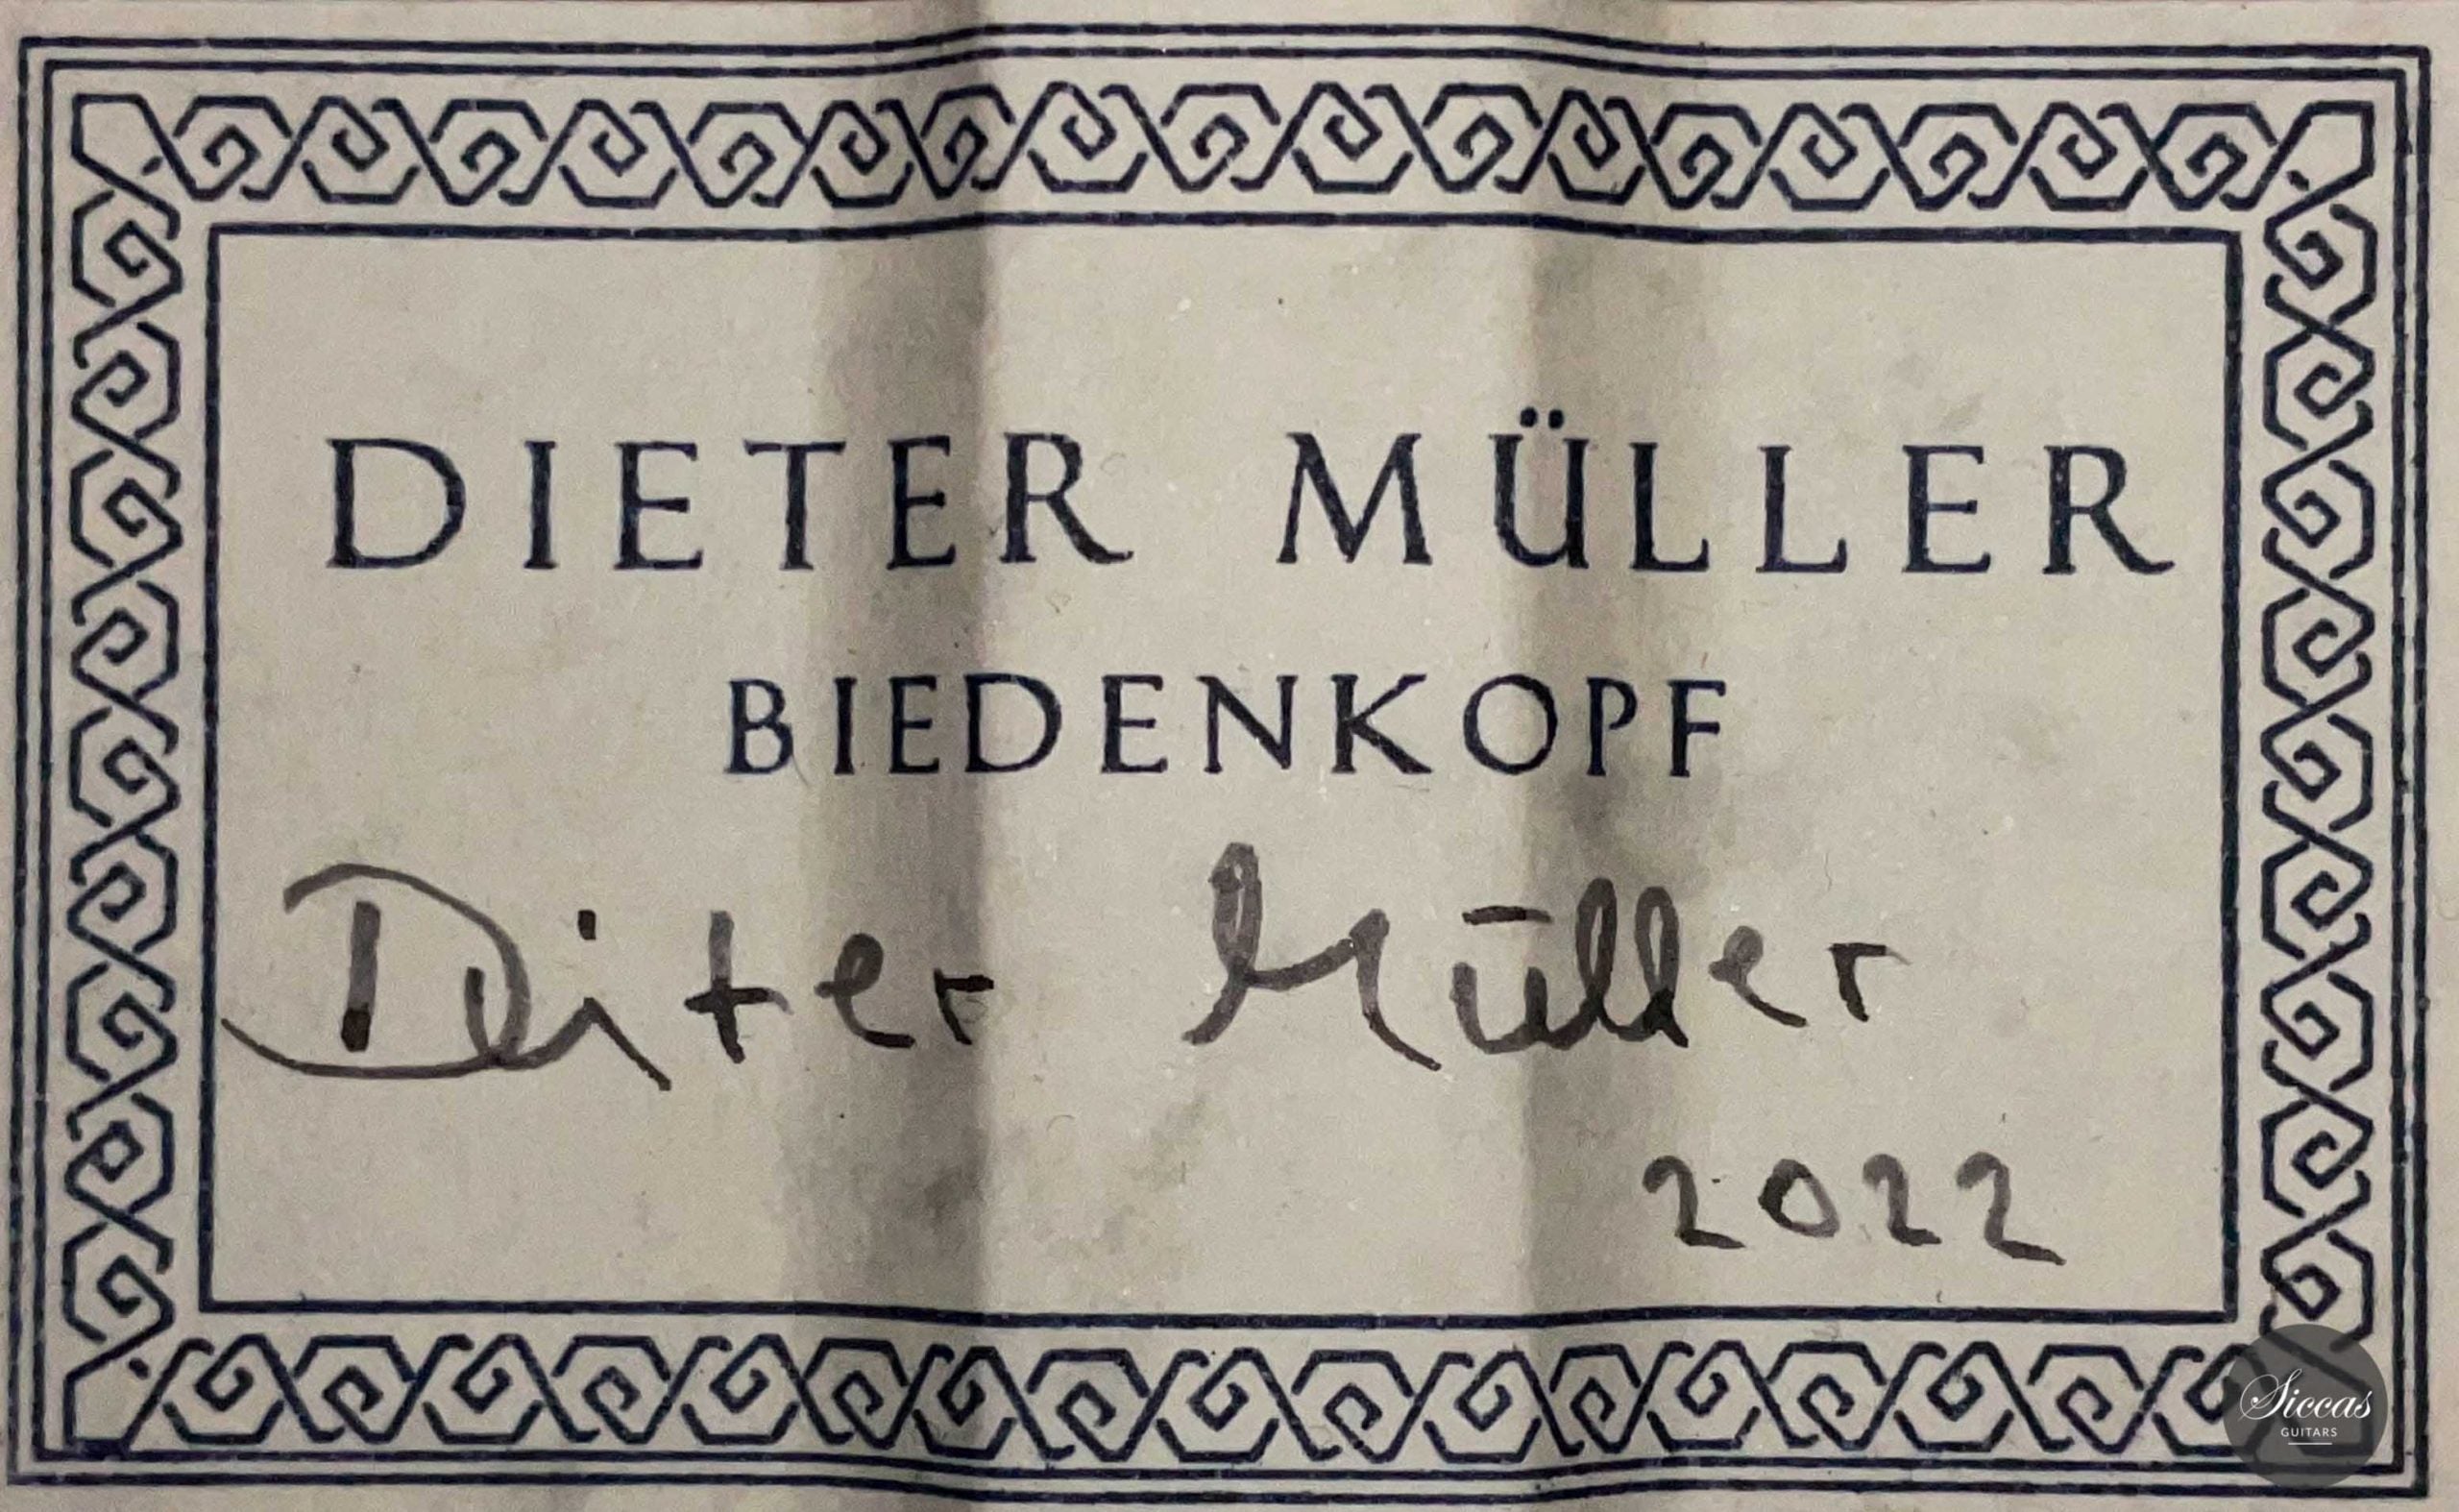 DIETER MÜLLER
BIEDENKOPF
Dieter Müller
2022
Siccas
GUITARS